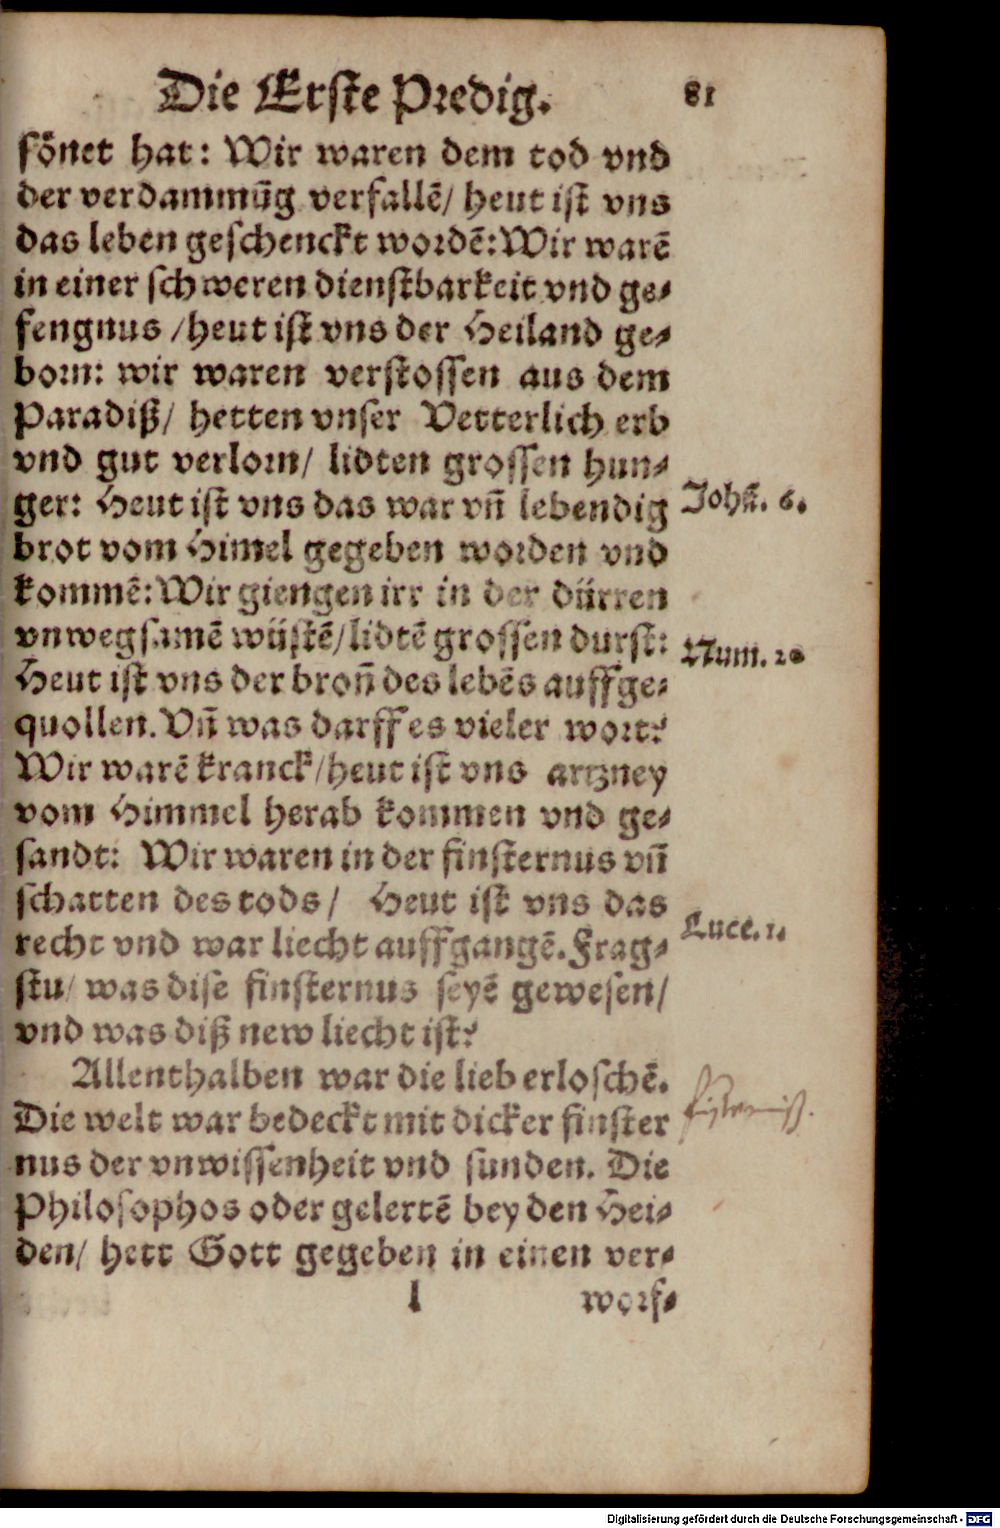 Die Erste Predig. 81
sönet hat: Wir waren dem tod vnd
der verdammūg verfallē/ heut ist vns
das leben geschenckt wordē: Wir warē
in einer schweren dienstbarkeit vnd ge⸗
fengnus /heut ist vns der Heiland ge⸗
born: wir waren verstossen aus dem
Paradiß/ hetten vnser Vetterlich erb
vnd gut verlorn/ lidten grossen hun⸗
ger: Heut ist vns das war vn̄ lebendig
Johā. 6.
brot vom Himel gegeben worden vnd
kommē: Wir giengen irr in der dürren
vnwegsamē wüstē/ lidtē grossen durst:
Num. 20
Heut ist vns der bron̄ des lebēs auffge⸗
quollen. Vn̄ was darff es vieler wort?
Wir warē kranck/ heut ist vns artzney
vom Himmel herab kommen vnd ge⸗
sandt: Wir waren in der finsternus vn̄
schatten des tods/ Heut ist vns das
recht vnd war liecht auffgangē. Frag⸗
Luce. 1.
stu/ was dise finsternus seyē gewesen/
vnd was diß new liecht ist?
Allenthalben war die lieb erloschē.
Die welt war bedeckt mit dicker finster
nus der vnwissenheit vnd sunden. Die
Philosophos oder gelertē bey den Hei⸗
den/ hett Gott gegeben in einen ver⸗
l worf⸗
Digitalisierung gefördert durch die Deutsche Forschungsgemeinschaft - DFG